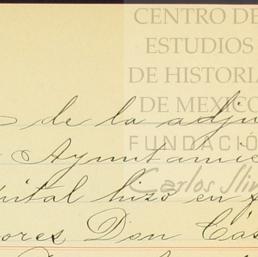 CENTRO DE
ESTUDIOS
DE HISTORIA
DE MEXICO
FUNDACIÓ
Carlos Sli
de la adju
Ayuntamie
pital hizo en
ores Don Cás